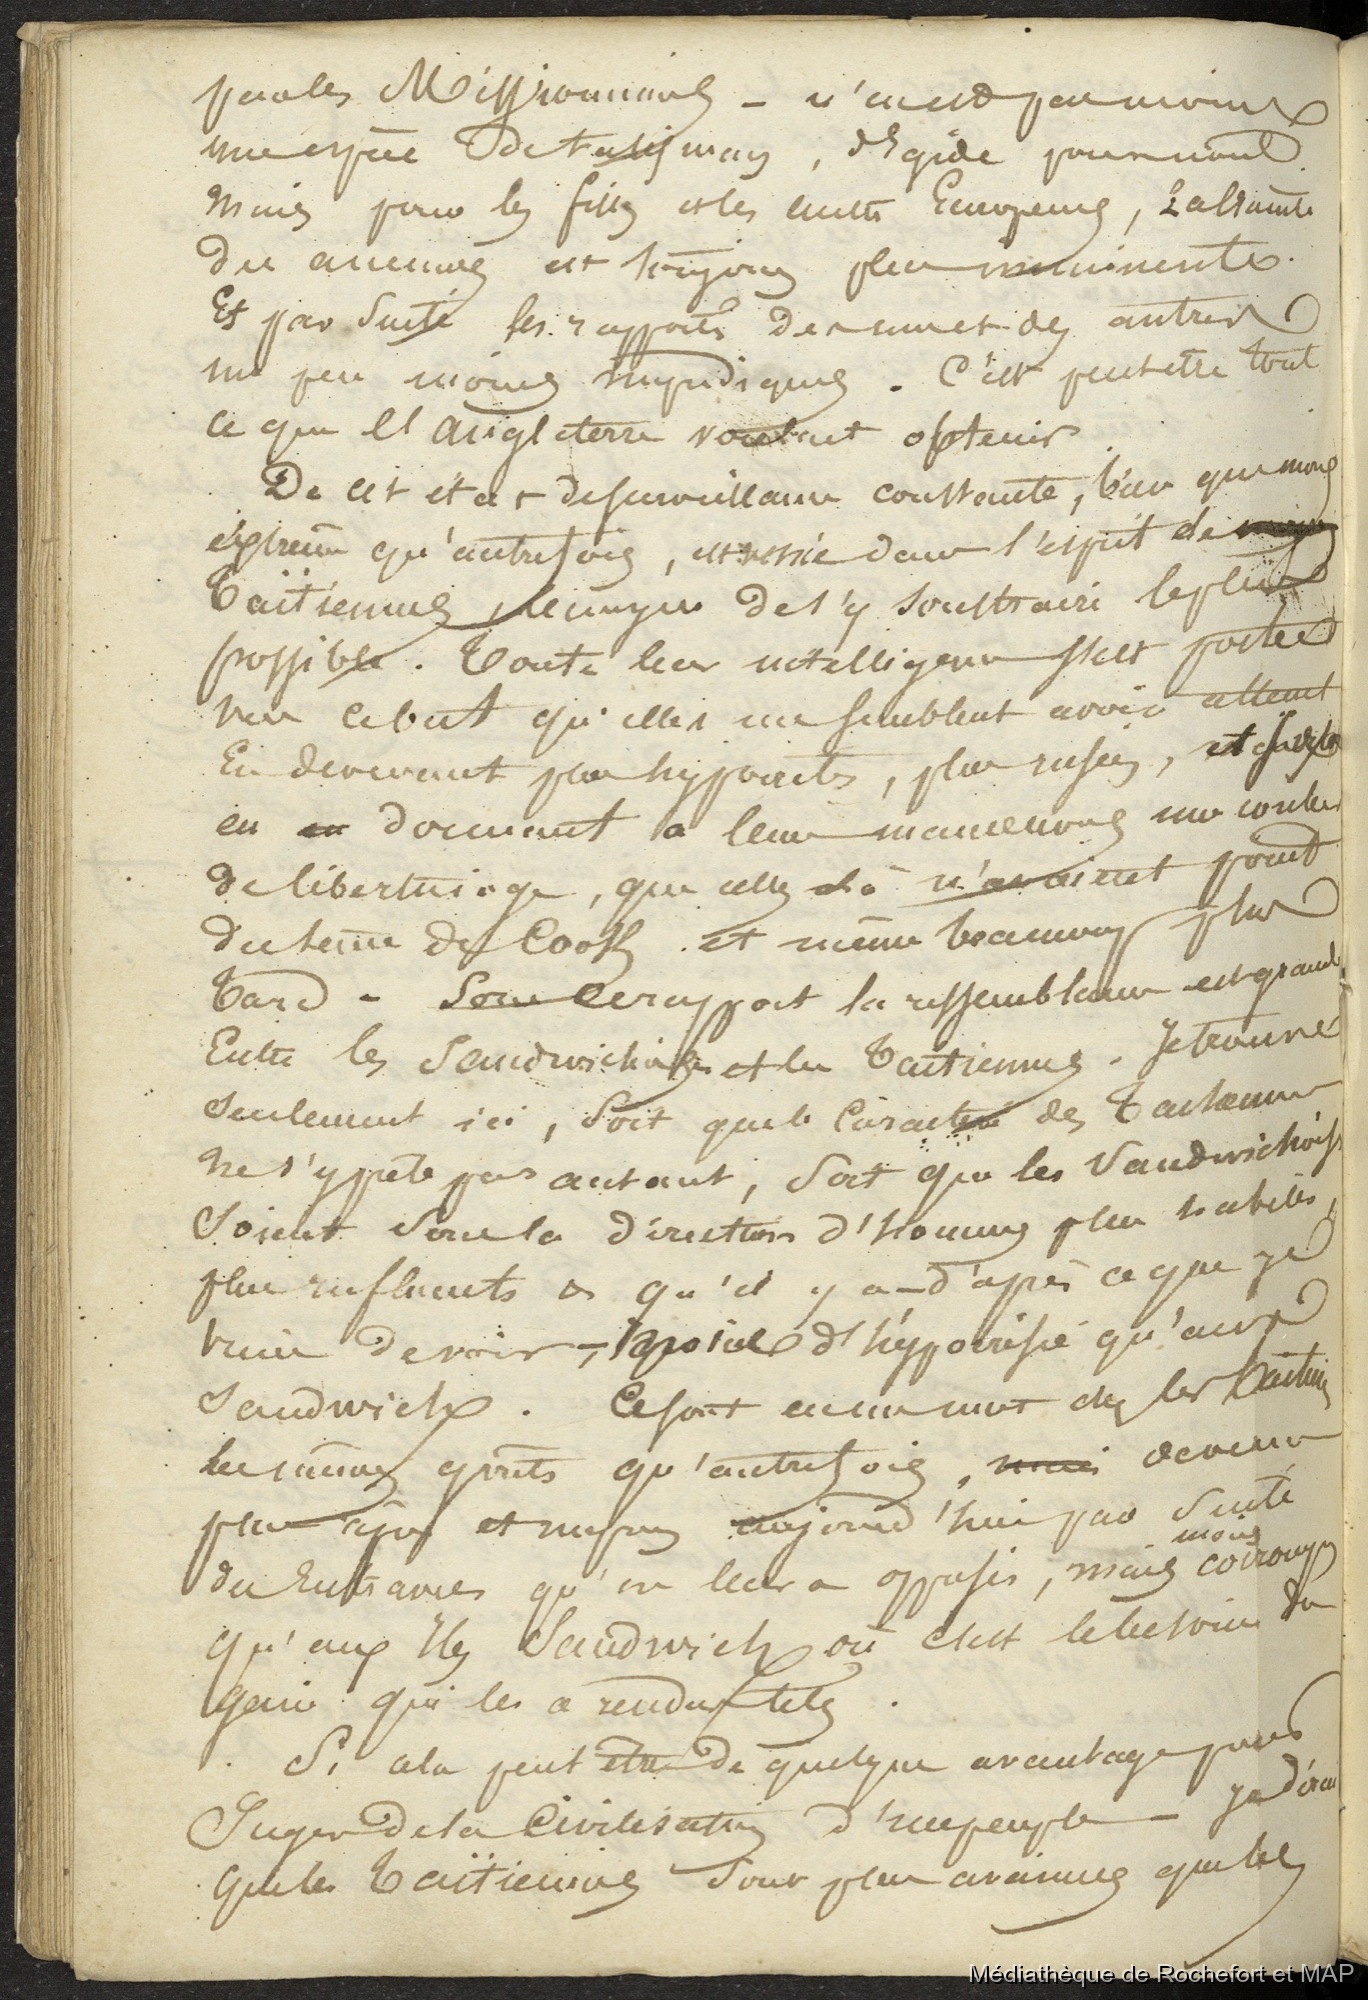 par les Missionnaires – n'en est pas moins
une espèce de talisman, d'égide pour nous
Mais pour les filles et les autres Européens, la crainte
des amendes est toujours plus imminente.
Et par suite les rapports des unes et des autres
un peu moins impudiques. C'est peut etre tout
ce que l'Angleterre voulait obtenir
De cet état de surveillance constante, bien que moins
extreme qu'autrefois, est restée dans l'esprit des
Taïtiennes de s'y soustraire le plus
possible. Toute leur intelligence s'est portée
vers ce but qu'elles me semblent avoir atteint
En devenant plus hypocrites, plus rusées, et
en en donnant a leurs manœuvres une couleur
de libertinage, que celles ci n'avaient point
du tems de Cook et même beaucoup plus
tard – Sous ce rapport la ressemblance est grande
Entre les Sandwichoises et les Taitiennes. Je trouve
seulement ici, soit que le caractère des Taitiennes
ne s'y prete pas autant, soit que les Sandwichois
Soient sous la direction d'hommes plus habiles,
plus influents qu'il y a d'après ce que je
viens de voir – moins d'hypocrisie qu'aux
Sandwich. Ce sont en un mot chez les Taitiens
les mêmes gouts qu'autrefois, mais devenus
plus et aujourd'hui par suite
des entraves qu'on leur a opposées, mais moins corrompus
qu'aux Iles Sandwich où c'est le besoin du
gain qui les a rendus tels.
Si cela peut etre de quelque avantage pour
Juger de la Civilisation d'un peuple – je dirai
que les Taïtiens sont plus avancés que les
Médiathèque de Rochefort et MAP